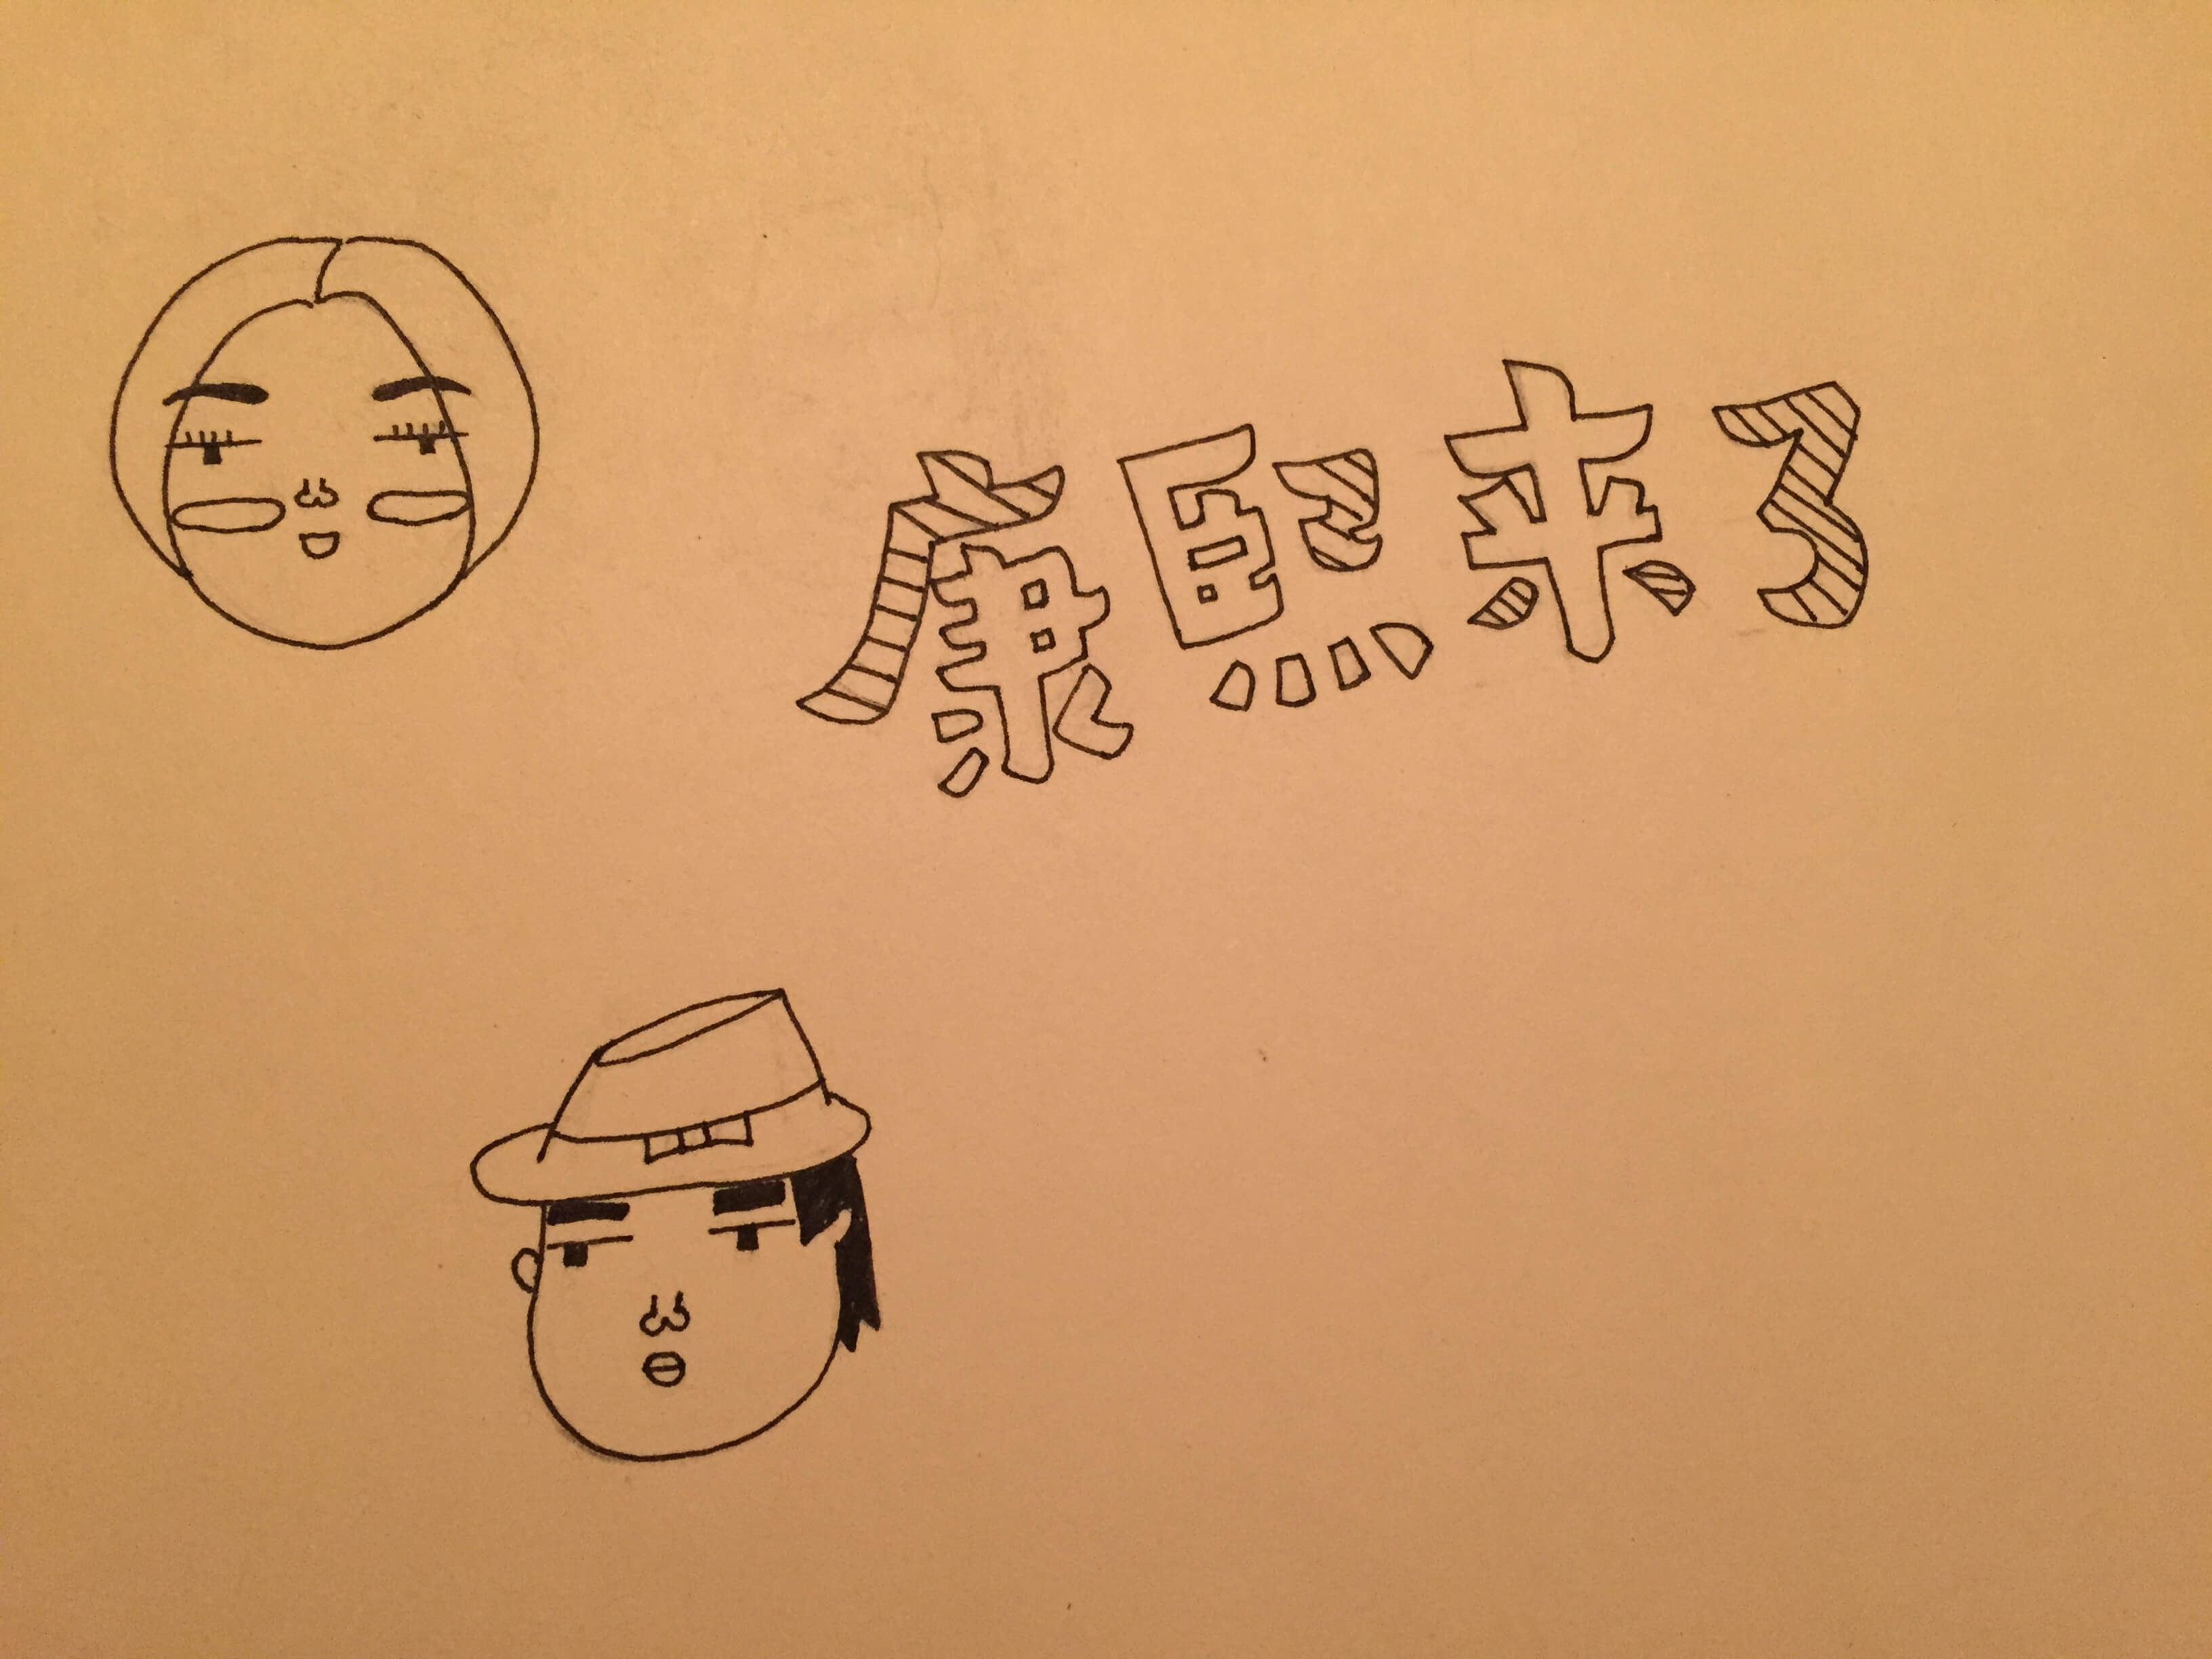 康熙来了